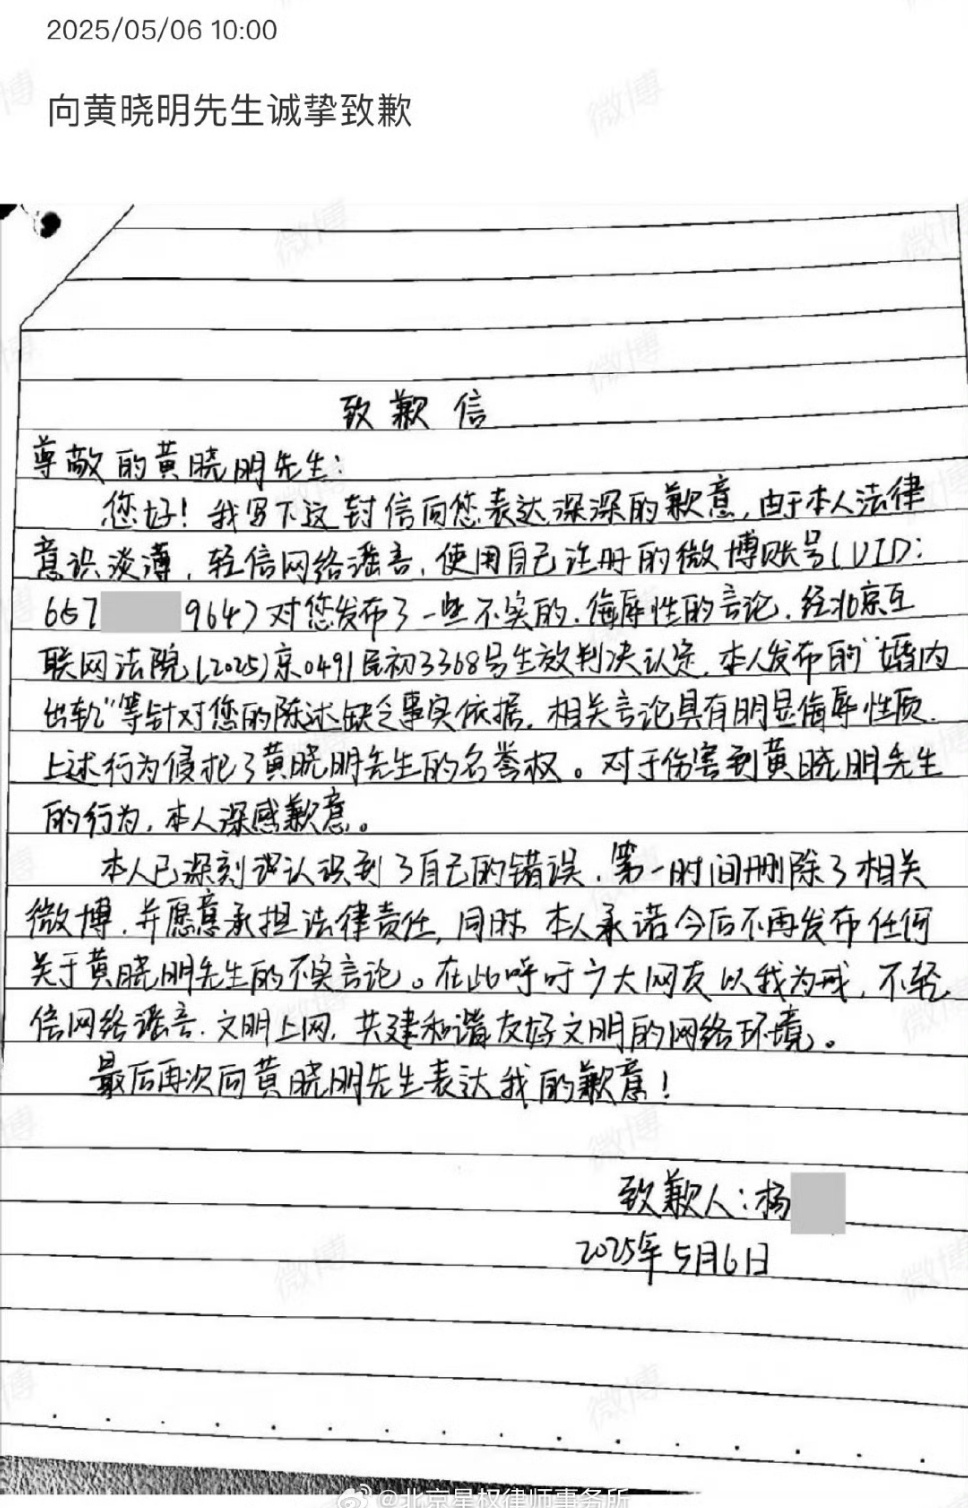 2025/05/06 10:00
向黄晓明先生诚挚致歉
致歉信
尊敬的黄晓明先生:
您好!我写下这封信向您表达深深的歉意,由于本人法律
意识淡薄,轻信网络谣言,使用自己注册的微博账号(UID:
657 9647对您发布了一些不实的、侮辱性的言论,经北京互
联网法院(2025)京0491民初3368号生效判决认定,本人发布的“婚内
出轨”等针对您的陈述缺乏事实依据,相关言论具有明显侮辱性质.
上述行为侵犯了黄晓明先生的名誉权。对于伤害到黄晓明先生
的行为,本人深感歉意。
本人已深刻认识到了自己的错误,第一时间删除了相关
微博,并愿意承担法律责任,同时,本人承诺今后不再发布任何
关于黄晓明先生的不实言论。在此呼吁广大网友以我为戒,不轻
信网络谣言.文明上网,共建和谐友好文明的网络环境。
最后再次向黄晓明先生表达我的歉意!
致歉人:杨
2025年5月6日
@北京星权律师事务所
微博